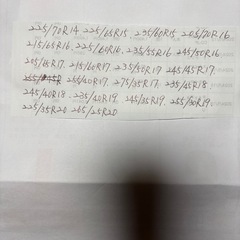 225/70R14 225/65R15. 235/60R15. 205/70R16
215/65R16. 225/60R16. 235/55R16 245/50R16
205/65R17. 215/60R17. 235/50R17 245/45R17
255/40R17. 275/35R17. 235/45R18
245/40R18. 235/40R19. 245/35R19. 255/30R19
225/35R20 265/25R20